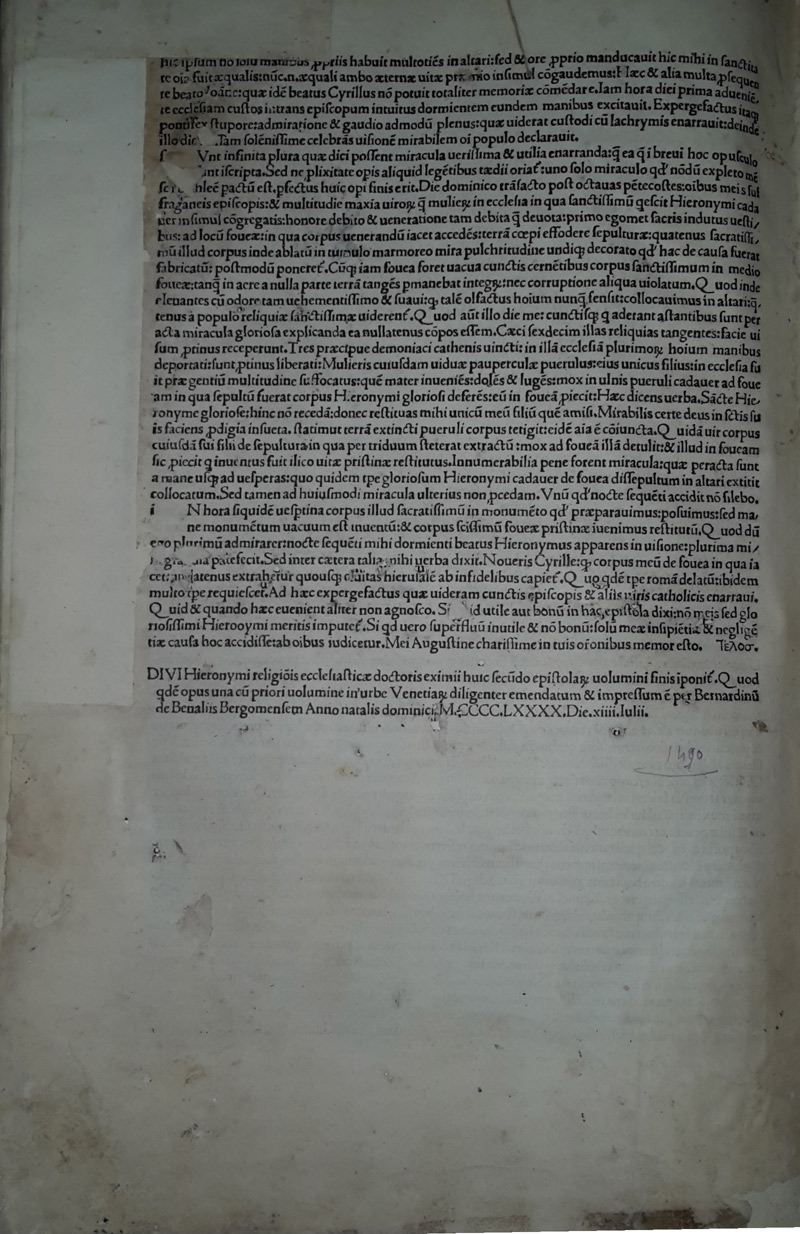 hic ipsum nō solū manibus ꝓpriis habuit multotiēs in altari:sed & ore ꝓprio manducauit hic mihi in sanctita
te oīo fuit æqualis:nūc.n.æquali ambo æternæ uitæ præmio insimul cōgaudemus:Hæc & alia multa ꝓsequen
te beato Ioāne:quæ idē beatus Cyrillus nō potuit totaliter memoriæ cōmēdare.Iam hora diei prima adueniē,
te ecclesiam custos intrans episcopum intuitus dormientem eundem manibus excitauit. Expergefactus itaq;
pontifex stupore:admiratione & gaudio admodū plenus:quæ uiderat custodi cū lachrymis enarrauit:deinde
illo die Tam solēnissime celebrās uisionē mirabilem oī populo declarauit.
s Vnt infinita plura quæ dici possent miracula uerissima & utilia enarranda:q̄ ea q̄ ī breui hoc opusculo
sunt īscripta.Sed ne ꝓlixitate opis aliquid legētibus tædii oriat᷑:uno solo miraculo qd' nōdū expleto me
fragāneis episcopis:& multitudīe maxīa uiroꝝ q̄ mulieꝝ in ecclesia in qua sanctissimū q̄escit Hieronymi cada
uer insimul cōgregatis:honore debito & ueneratione tam debita q̄ deuota:primo egomet sacris indutus uesti/
bus: ad locū foueæ:in qua corpus uenerandū iacet accedēs:terrā cœpi effodere sepulturæ:quatenus sacratissi/
mū illud corpus inde ablatū in tumulo marmoreo mira pulchritudine undiq; decorato qd' hac de causa fuerat
fabricatū: postmodū poneret᷑. Cūq; iam fouea foret uacua cunctis cernētibus corpus sanctissimum in medio
foueæ:tanq̄ in aere a nulla parte terrā tangēs pmanebat integꝝ:nec corruptione aliqua uiolatum.Quod inde
eleuantes cū odore tam uehementissimo & suaui:q; talē olfactus hoīum nunq̄ sensit:collocauimus in altari:q̄,
tenus a populo reliquiæ sāctissimæ uiderent᷑. Quod aūt illo die me: cunctisq; q aderant astantibus sunt per
acta miracula gloriosa explicanda ea nullatenus cōpos essem. Cæci sexdecim illas reliquias tangentes: facie ui
sum ꝓtinus receperunt. Tres præcipue demoniaci cathenis uincti: in illā ecclesiā plurimoꝝ hoium manibus
deportati:sunt ꝓtinus liberati: Mulieris cuiusdam uiduæ pauperculæ puerulus:eius unicus filius:in ecclesia fu
it præ gentiū multitudine suffocatus:quē mater inueniēs:dolēs & lugēs:mox in ulnis pueruli cadauer ad foue
am in qua sepultū fuerat corpus Hieronymi gloriosi deferēs:eū in foueā ꝓiecit:Hæc dicens uerba.Sācte Hie,
ronyme gloriose:hinc nō recedā:donec restituas mihi unicū meū filiū quē amisi. Mirabilis certe deus in sctis su
is faciens ꝓdigia insueta. statimut terrā extincti pueruli corpus tetigit:eidē aīa ē cōiuncta. Quidā uir corpus
cuiusdā sui filii de sepultura in qua per triduum steterat extractū :mox ad foueā illā detulit:& illud in foueam
sic ꝓiecit q inuentus fuit ilico uitæ pristinæ restitutus.Innumerabilia pene forent miracula:quæ peracta sunt
a mane usq; ad uesperas:quo quidem tpe gloriosum Hieronymi cadauer de fouea dissepultum in altari extitit
collocatum. Sed tamen ad huiusmodi miracula ulterius non ꝓcedam. Vnū qd' nocte sequēti accidit nō silebo.
i N hora siquidē uesptina corpus illud sacratissimū in monumēto qd' præparauimus:posuimus:sed ma,
ne monumētum uacuum est inuentū:& corpus scissimū foueæ pristinæ iuenimus restitutū.Quod dū
ego plurimū admirarer:nocte sequēti mihi dormienti beatus Hieronymus apparens in uisione:plurima mi/
patefecit. Sed inter cætera talia mihi uerba dixit. Noueris Cyrille:q; corpus meū de fouea in qua ia
cet:nullatenus extrahetur quousq; ciuitas hierusalē ab infidelibus capiet᷑. Quo qdē tpe romā delatū:ibidem
multo tpe requiescet. Ad hæc expergefactus quæ uideram cunctis episcopis & aliis uiris catholicis enarraui.
Quid & quando hæc euenient aliter non agnosco. Si id utile aut bonū in hac epistola dixi:nō meis sed glo
riosissimi Hieronymi meritis imputet᷑. Si qd uero superfluū inutile & nō bonū: solū meæ insipiētiæ & neglīgē
tiæ causa hoc accidisse:ab oibus iudicetur. Mei Augustine charissime in tuis oronibus memor esto. Τελοσ.
DIVI Hieronymi religiōis ecclesiasticæ doctoris eximii huic secūdo epistolaꝝ uolumini finis iponit᷑. Quod
qdē opus una cū priori uolumine in urbe Venetiaꝝ diligenter emendatum & impressum ē per Bernardinū
de Benaliis Bergomensem Anno natalis dominici. MCCCC.LXXXX. Die. xiiii. Iulii.
1490